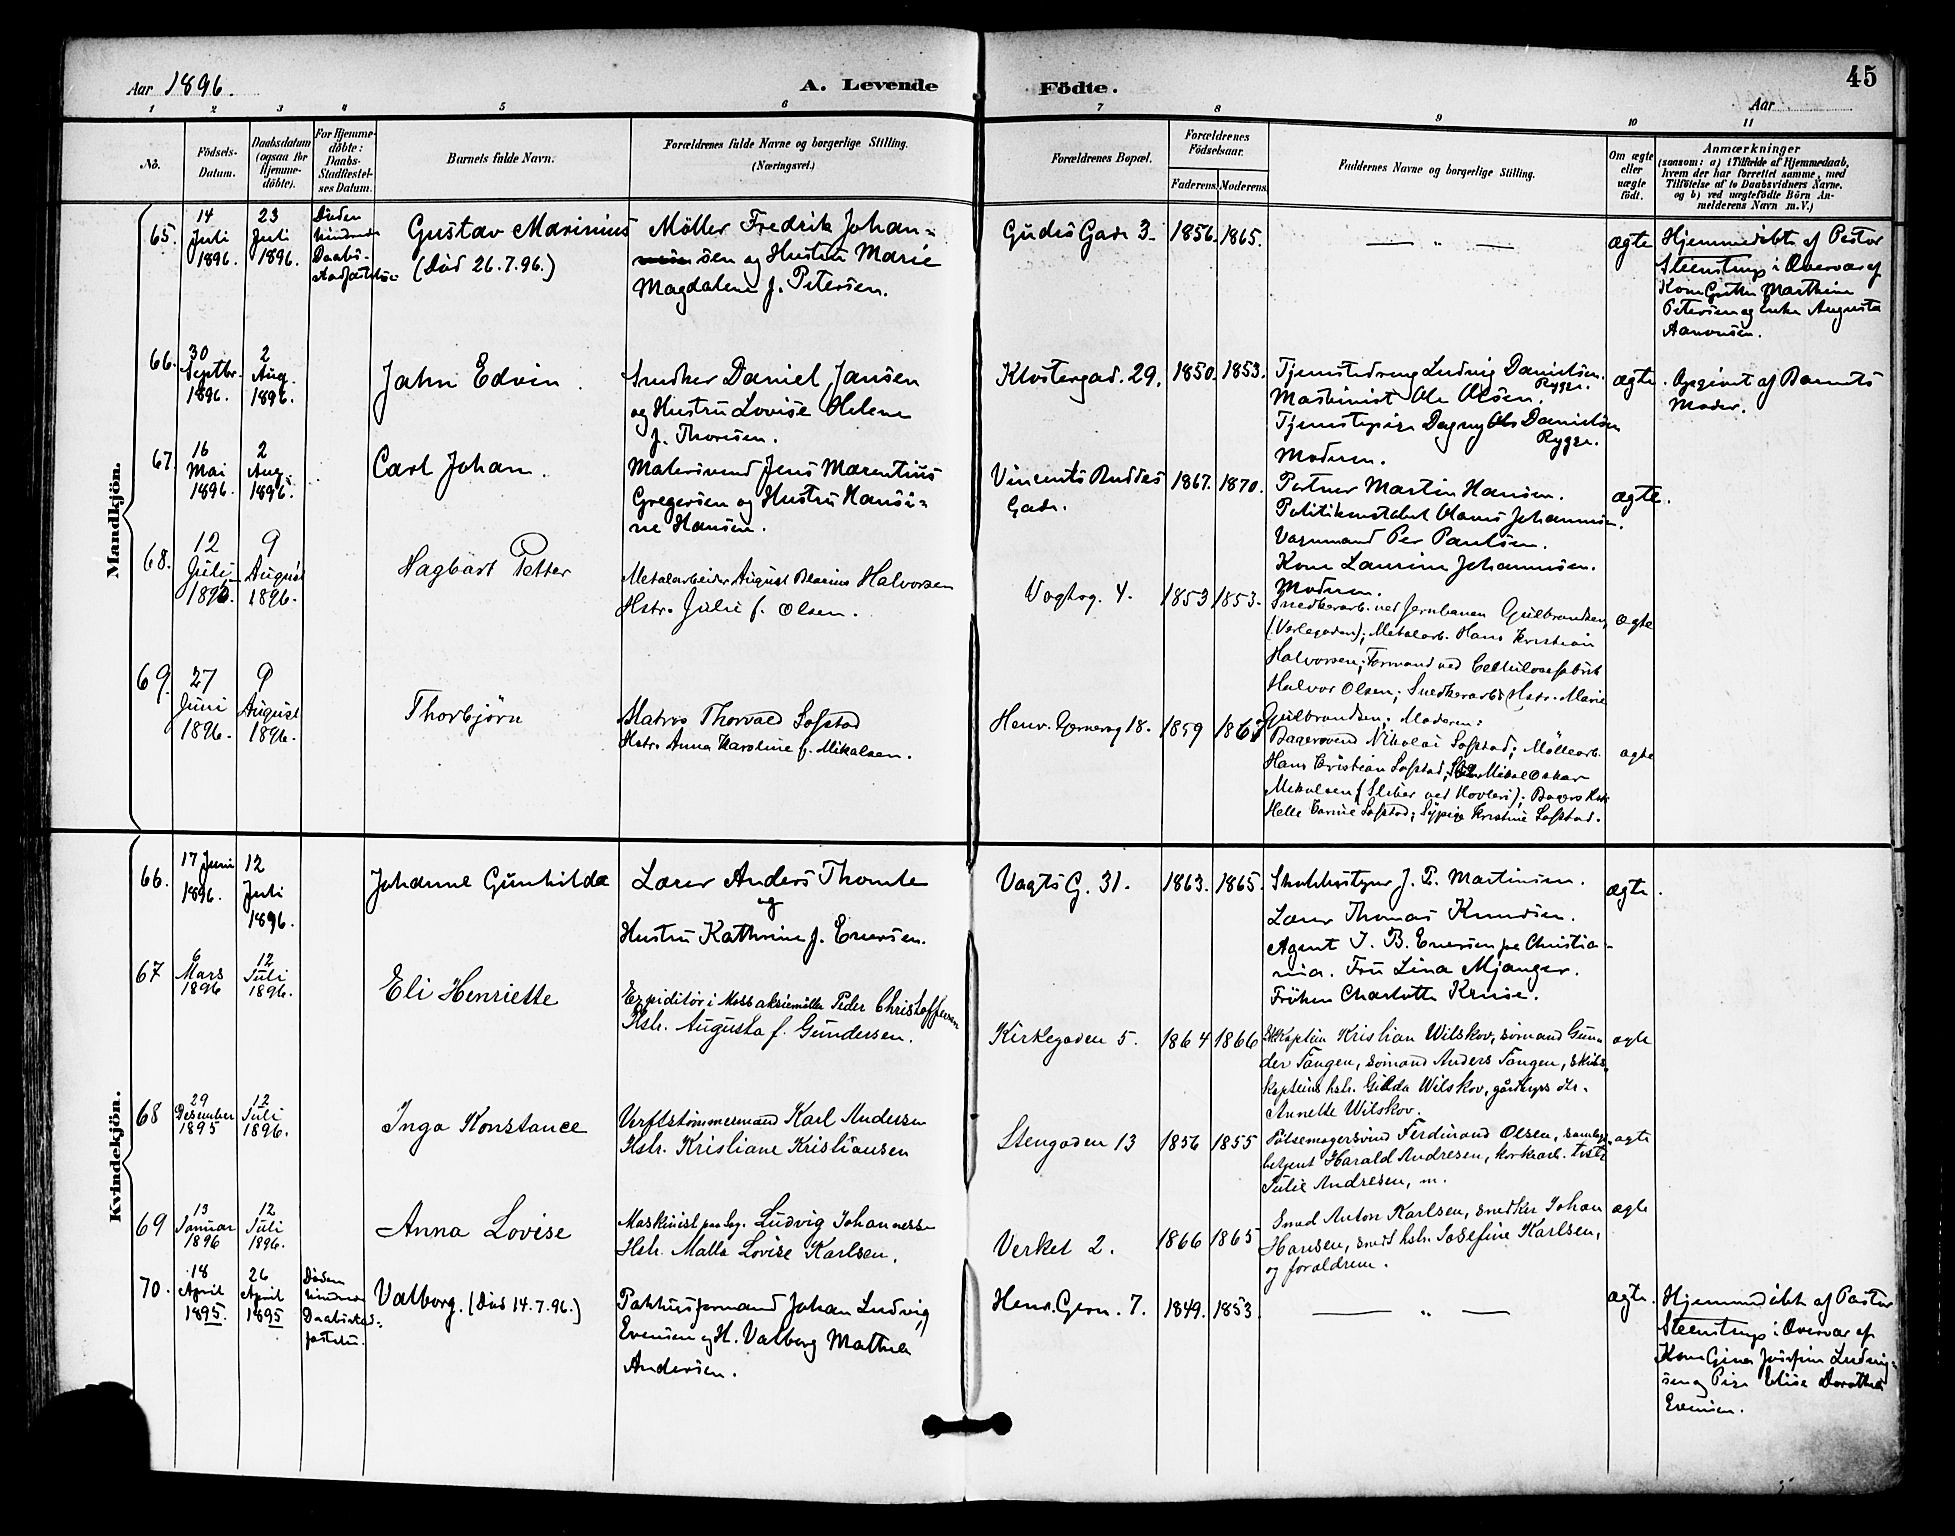 Aar 1896.
A. Levende Födte.
45
Aar
1 2 3 4 5 6 7 8 9 10 11
No.
Födsels-Datum.
Daabsdatum (ogsaa for Hjemme-döbte).
For Hjemme-döbte: Daabs-Stadfæstel-ses Datum.
Barnets fulde Navn.
Forældrenes fulde Navne og borgerlige Stilling. (Næringsvei.)
Forældrenes Bopæl.
Forældrenes Födselsaar.
Faderens.
Moderens.
Faddernes Navne og borgerlige Stilling.
Om ægte eller uægte födt.
Anmærkninger
(saasom: a) i Tilfælde af Hjemmedaab, hvem der har forrettet samme, med Tilföielse af to Daabsvidners Navne. og b) ved uægtefödte Börn An-melderens Navn m. V.)
Mandkjön.
65. 14 Juli 1896. 23 Juli 1896. Döden hindrede Daabs-stadfæstelse
Gustav Marinius (Död 26.7.96.)
Möller Fredrik Johan-sen og Hustru Marie Magdalene f. Petersen.
Gudes Gade 3. 1856. 1865. — " — ægte
Hjemmedöbt af Pastor Steenstrup i Overvær af Kone Grethe Marthine Petersen og Enke Augusta
66. 30 Septbr 1896. 2 Aug. 1896.
John Edvin.
Snedker Daniel Jansen og Hustru Lovise Helene f. Thoresen.
Klostergad. 29. 1850. 1853.
Tjenestedreng Ludvig Danielsen. Rygge. Maskinist Ole Olsen. Tjenestepige Dagny Danielsen Rygge. Moderen.
ægte.
Opgivet af Barnets Moder.
67. 16 Mai 1896. 2 Aug. 1896.
Carl Johan.
Malersvend Jens Marentius Gregersen og Hustru Hansi-ne Hansen.
Vincents Buddes Gade. 1867. 1870.
Portner Martin Hansen. Politikonstabel Olaus Johannesen. Vognmand Per Paulsen. Kone Laurine Johannesen. Moderen.
ægte.
68. 12 Juli 1896. 9 August 1896.
Hagbart Petter
Metalarbeider August Halvorsen Hstr. Julie f. Olsen.
Vogtsg. 4. 1853 1853.
Snedkerarb. ved Jernbanen Gulbrandsen, (Vorlegaden); Metalarb. Hans Kristian Halvorsen; Formand ved Cellulosefabrik Halvor Olsen; Snedkerarb. Hstr. Marie Gulbrandsen; Moderen.
ægte
69. 27 Juni 1896. 9 August 1896.
Thorbjörn
Matros Thorvald Sofstad Hstr. Anna Karoline f. Mikalsen.
Henr. Gernersg 18. 1859
Bagersvend Nikolai Sofstad; Möllearb. Hans Kristian Sofstad; Mikal Oskar Mikalsen (Sliber ved Hovleri); Helle Karine Sofstad; Sypige Kristine Sofstad.
ægte
Kvindekjön.
66. 17 Juni 1896. 12 Juli 1896.
Johanne Gunhilda
Lærer Anders Thomle og Hustru Kathrine f. Enersen.
Vogts G. 31. 1863. 1865.
Skolebestyrer J. P. Martinsen. Lærer Thomas Knudsen. Agent I. B. Enersen paa Christia-nia. Fru Lina Mjanger. Fröken Charlotte Kruse.
ægte.
67 6 Mars 1896 12 Juli 1896.
Eli Henriette
Expeditör i Moss aksiemölle Peder Christoffersen Hstr. Augusta f. Gundersen.
Kirkegaden 5. 1864 1866
Kristian Wilskov, sömand Gun-der Tangen, sömand Anders Tangen, skibs-kapteins hstr. Gilda Wilskov, Annette Wilskov.
ægte
68 29 Desember 1895 12 Juli 1896.
Inga Konstance
Verftstömmermand Karl Andersen Hstr. Kristiane Kristiansen
Stengaden 13 1856 1855
Pölsemagersvend Ferdinand Olsen, betjent Harald Andresen, korkearb. Julie Andresen, m.
ægte
69 13 Januar 1896 12 Juli 1896.
Anna Lovise
Maskinist paa Sag. Ludvig Johannessen Hstr. Malla Lovise Karlsen.
Verket 2. 1866 1865
Smed Anton Karlsen, snedker Johan Hansen, smeds hstr. Josefine Karlsen, og foraldrene.
ægte
70. 18 April 1895. 26 April 1895 Döden hindrede Daabsstad-fæstelse.
Valborg. (Död 14.7.96.)
Pakhusformand Johan Ludvig Evensen og H. Valborg Mathea Andersen.
Henr. Gern. 7. 1849. 1853. — " — ægte.
Hjemmedöbt af Pastor Steenstrup i Overvær af Kone Gina Josefine Ludvig-sen og Pige Elisa Dorothea Evensen.